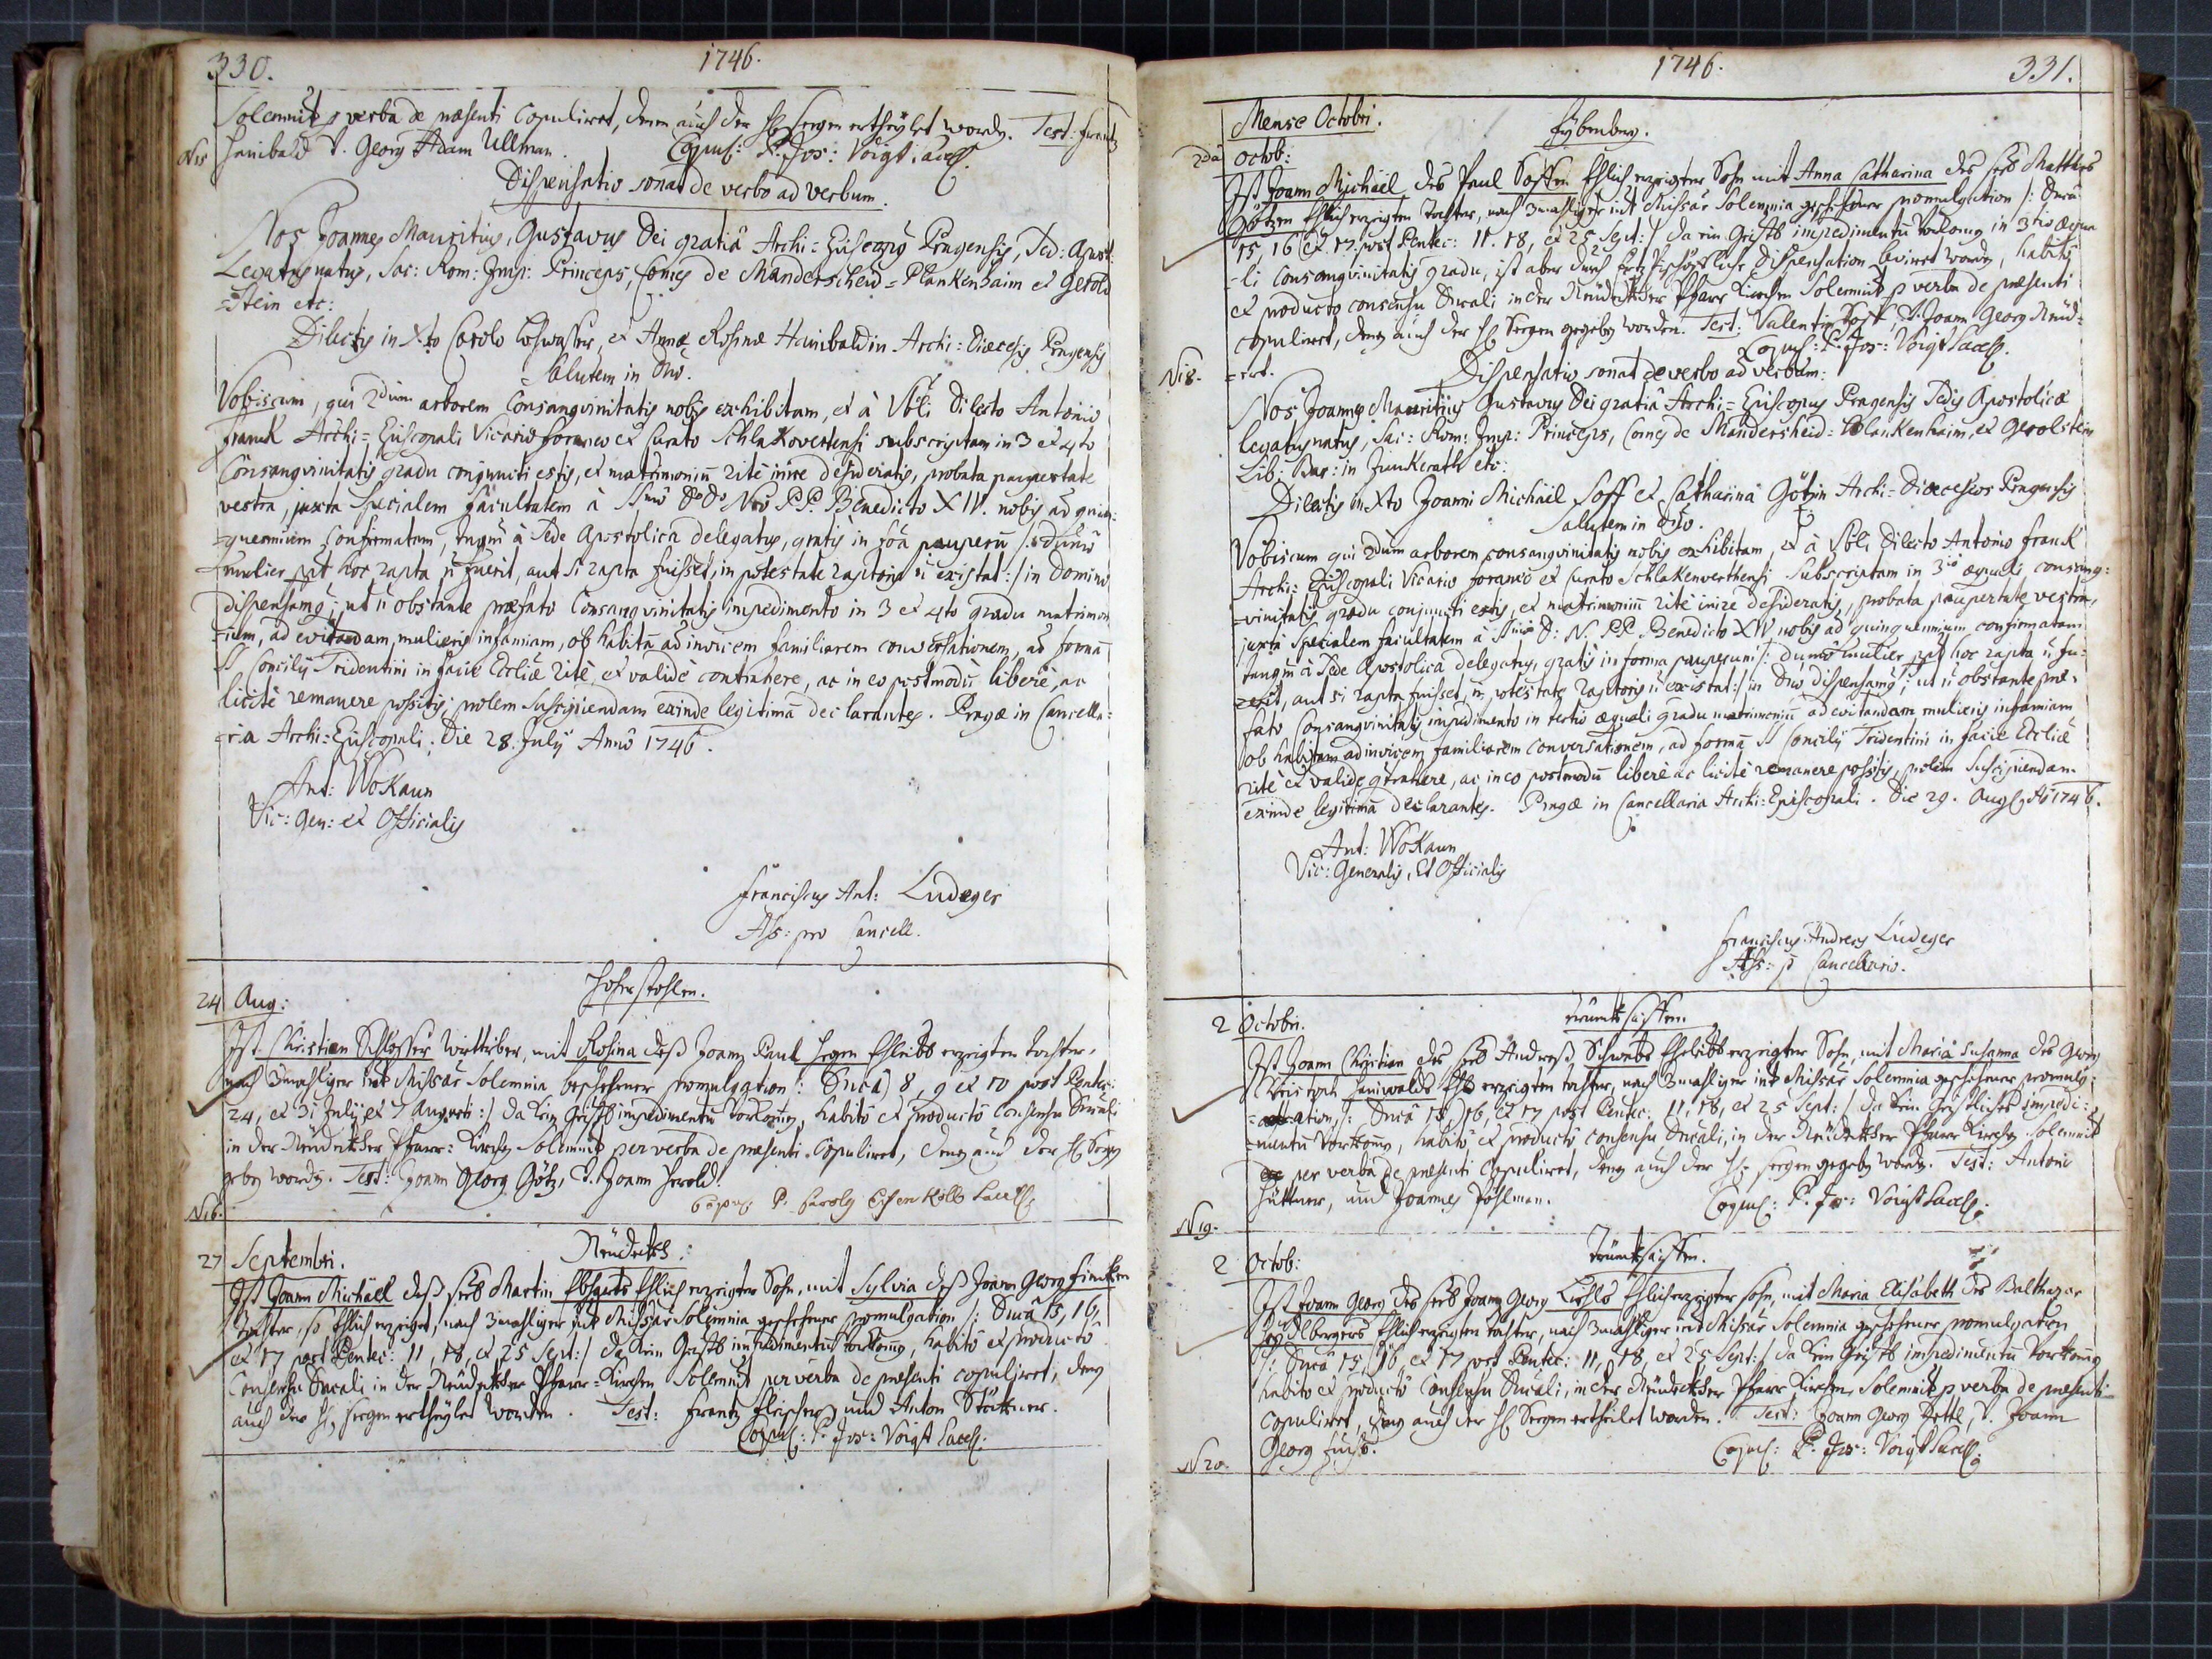 330.
1746.
Solemnit. p verba de præsenti Copuliret, denen auch der Hl. Seegen ertheylet worden. Test: Frantz
N 15 Hanibald V. Georg Adam Ullman. Copul: P. Jos: Voigt Sacell.
Dispensatio sonat de verbo ad Verbum.
Nos Joannes Mauritius, Gustavus Dei gratiâ Archi=Episcopus Pragensis, Sed: Apost:
Legatus natus, Sac: Rom: Imp: Princeps, Comes de Manderscheid=Plankenhaim et Gerold
=stein etc:
Dilectis in Xto Carolo, et Annæ Rosinæ Hanibaldin Archi=Diœcesis Pragensis
Salutem in Dno.
Vobiscum, qui 2dum arborem Consangvinitatis nobis exhibitam, et à Vbli Dilecto Antonio
Franck Archi=Episcopali Vicario foraneo et Curato Schlakovertensi subscriptam in 3 et 4to
Consangvinitatis gradu conjuncti estis, et matrimoniu rité inire desideratis, probata paupertate
vestra, juxta specialem facultatem à Ssmo Do Do Nro P.P. Benedicto XIV. nobis ad quin=
=quennium confirmatam, tanqm à Sede Apostolica delegatus, gratis in foâ pauperu /: dumo
mulier ppt hoc rapta ñ fuerit, aut si rapta fuisset, in potestate raptoris ñ existat :/ in Domino
dispensamus; ut ñ obstante præfato Consangvinitatis impedimento in 3 et 4to gradu matrimon
=ium, ad evitandam mulieris infamiam, ob habitã ad invicem familiarem conversationem, ad formã
S Concilij Tridentini in facie Ecclîæ rité, et validé contrahere, ac in eo postmodũ liberè, ac
licité remanere possitis; prolem Suscipiendam exinde legitimã declarantes. Pragæ in Cancella=
=ria Archi=Episcopali; Die 28. July Anno 1746.
Ant: WoKaun
Vic: Gen: et Officialis
Franciscus Ant: Ludeger
Ass: pro Cancell.
24 Aug: Hoher Stohlen.
Ist Christian Schlosser Wittiber, mit Rosina deß Joann Paul Hegen Ehleibl. erzeigten tochter,
nach 3mahliger int Missar Solemnia beschehener promulgation /: Dnica 8, 9 et 10 post Pentec:
24, et 31 July et 7 Augusti :/ da kein Geistl. impedimentũ vorkoṁen, habitô et productô Consensu Dnicali
in der Neudekher Pfarr=Kirchen Solemnit per verba de præsenti Copuliret, denen auch der Hl. Seegen
geben worden. Test: Joann Georg Götz, V. Joann Herold.
N 16. Copul. P. Carolus Eisenkolb Sacell.
27 Septembri. Neudekh.
Ist Joann Michäel deß seel. Martin Ehlich erzeigter Sohn, mit Sylvia deß Joann Georg
Tochter, so Ehlich erzeiget, nach 3mahliger int Missar Solemnia geschehener promulgation /: Dnica 15, 16,
et 17 post Pentec: 11, 18, et 25 Sept :/ da kein Geistl. impedimentũ vorkoṁen, habitô et productô
Consensu Dnicali in der Neudekher Pfarr=Kirchen Solemnit per verba de præsenti copuliret, denen
auch der Hl. Seegen ertheylet worden. Test: Frantz Fleischer und Anton Stöckner.
Copul: P. Jos: Voigt Sacell.
1746.
331.
Mense Octobri.
2da octob:
Ist Joann Michäel des Paul Soffen Ehlich erzeigter Sohn mit Anna Catharina des seel. Matthes
Götzen Ehlich erzeigten Tochter, nach 3mahliger int Missar Solemnia geschehener promulgation /: Dnica
15, 16 et 17. post Pentec: 11. 18, et 25 Sept :/ da ein Geistl. impedimentũ Vorkoṁen in 3tio æqua
=li Consangvinitatis gradu, ist aber durch Ertz Bischöfliche Dispensation leviret worden, habitô
et producto consensu Dnicali in der Neudekher Pfarr Kirchen Solemnit p verba de præsenti
copuliret, denen auch der Hl. Seegen gegeben worden. Test: Valentin, V. Joann Georg
Copul: P. Jos: Voigt Sacell.
N 18.
Dispensatio sonat de verbo ad verbum:
Nos Joannes Mauritius Gustavus Dei gratiâ Archi=Episcopus Pragensis Sedis Apostolicæ
legatus natus, Sac: Rom: Imp: Princeps, Comes de Mandersheid=Blankenhaim, et Gerolstein
Lib: Bar: in Junkerath etc:
Dilectis in Xto Joanni Michäel Soff et Catharina Götzin Archi=Diœceseos Pragensis
Salutem in Dno.
Vobiscum qui 2dum arborem consangvinitatis nobis exhibitam, et à Vbli Dilecto Antonio Franck
Archi=Episcopali Vicario foraneo et Curato Schlakenverthensi Subscriptam in 3io æquali consang=
=vinitatis gradu conjuncti estis, et matrimoniũ rité inire desideratis, probata paupertate vestra,
juxta specialem facultatem à Ssmo D: N. PP. Benedicto XIV nobis ad quinquennium confirmatam
tanqm à Sede Apostolica delegatus, gratis in forma pauperum /: dumo mulier ppt hoc rapta ñ fu=
=erit, aut si rapta fuisset, in potestate raptoris ñ existat :/ in Dno dispensamus; ut ñ obstante præ=
fato Consangvinitatis impedimento in tertio æquali gradu matrimoniũ ad evitandam mulieris infamiam
ob habitam ad invicem familiarem conversationem, ad formã S Concilij Tridentini in facie Ecclîæ
rité et validé contrahere, ac in eo postmodũ liberè ac licité remanere possitis, prolem Suscipiendam
exinde legitimã declarantes. Pragæ in Cancellaria Archi=Episcopali. Die 29. Aug. Ao 1746.
Ant: WoKaun
Vic: Generalis, Et Officialis
Franciscus Andreas Ludeger
Ass: p Cancellario.
2 Octobri.
Ist Joann Christian des seel. Andreaß Schwabs Ehelibl. erzeigter Sohn, mit Maria Susanna des Georg
Christoph Haniwalds Ehl. erzeigten tochter, nach 3mahliger int Missar Solemnia geschehener promulg=
=ation /: Dnica 15, 16, et 17 post Pentec: 11, 18, et 25 Sept :/ da kein Geistliches impedi=
=mentũ Vorkoṁen, habitô et productô consensu Dnicali, in der Neudekher Pfarr Kirchen Solemnit
per verba de præsenti Copuliret, denen auch der Hl. Seegen gegeben worden. Test: Antoni
Hüttner, und Joannes Pöhlman. Copul: P. Jos: Voigt Sacell.
N 19.
2 Octob:
Ist Joann Georg des seel. Joann Georg Ehlich erzeigter Sohn, mit Maria Elisabeth des Balthazar
Ehlich erzeigten tochter, nach 3mahliger int Missar Solemnia geschehener promulgation
/: Dnica 15, 16, et 17 post Pentec: 11, 18, et 25 Sept :/ da kein Geistl. impedimentũ Vorkoṁen
habito et productô Consensu Dnicali, in der Neudekher Pfarr Kirchen Solemnit p verba de præsenti
Copuliret, denen auch der Hl. Seegen ertheilet worden. Test: Joann Georg, V. Joann
Georg Fuchs. Copul: P. Jos: Voigt Sacell.
N 20.